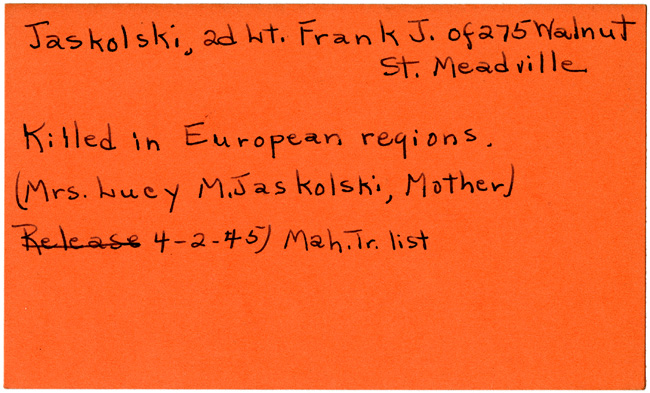 Jaskolski, 2d Lt. Frank J. of 275 Walnut
St. Meadville
Killed in European regions.
(Mrs. Lucy M. Jaskolski, Mother)
Release 4-2-45) Mah. Tr. list